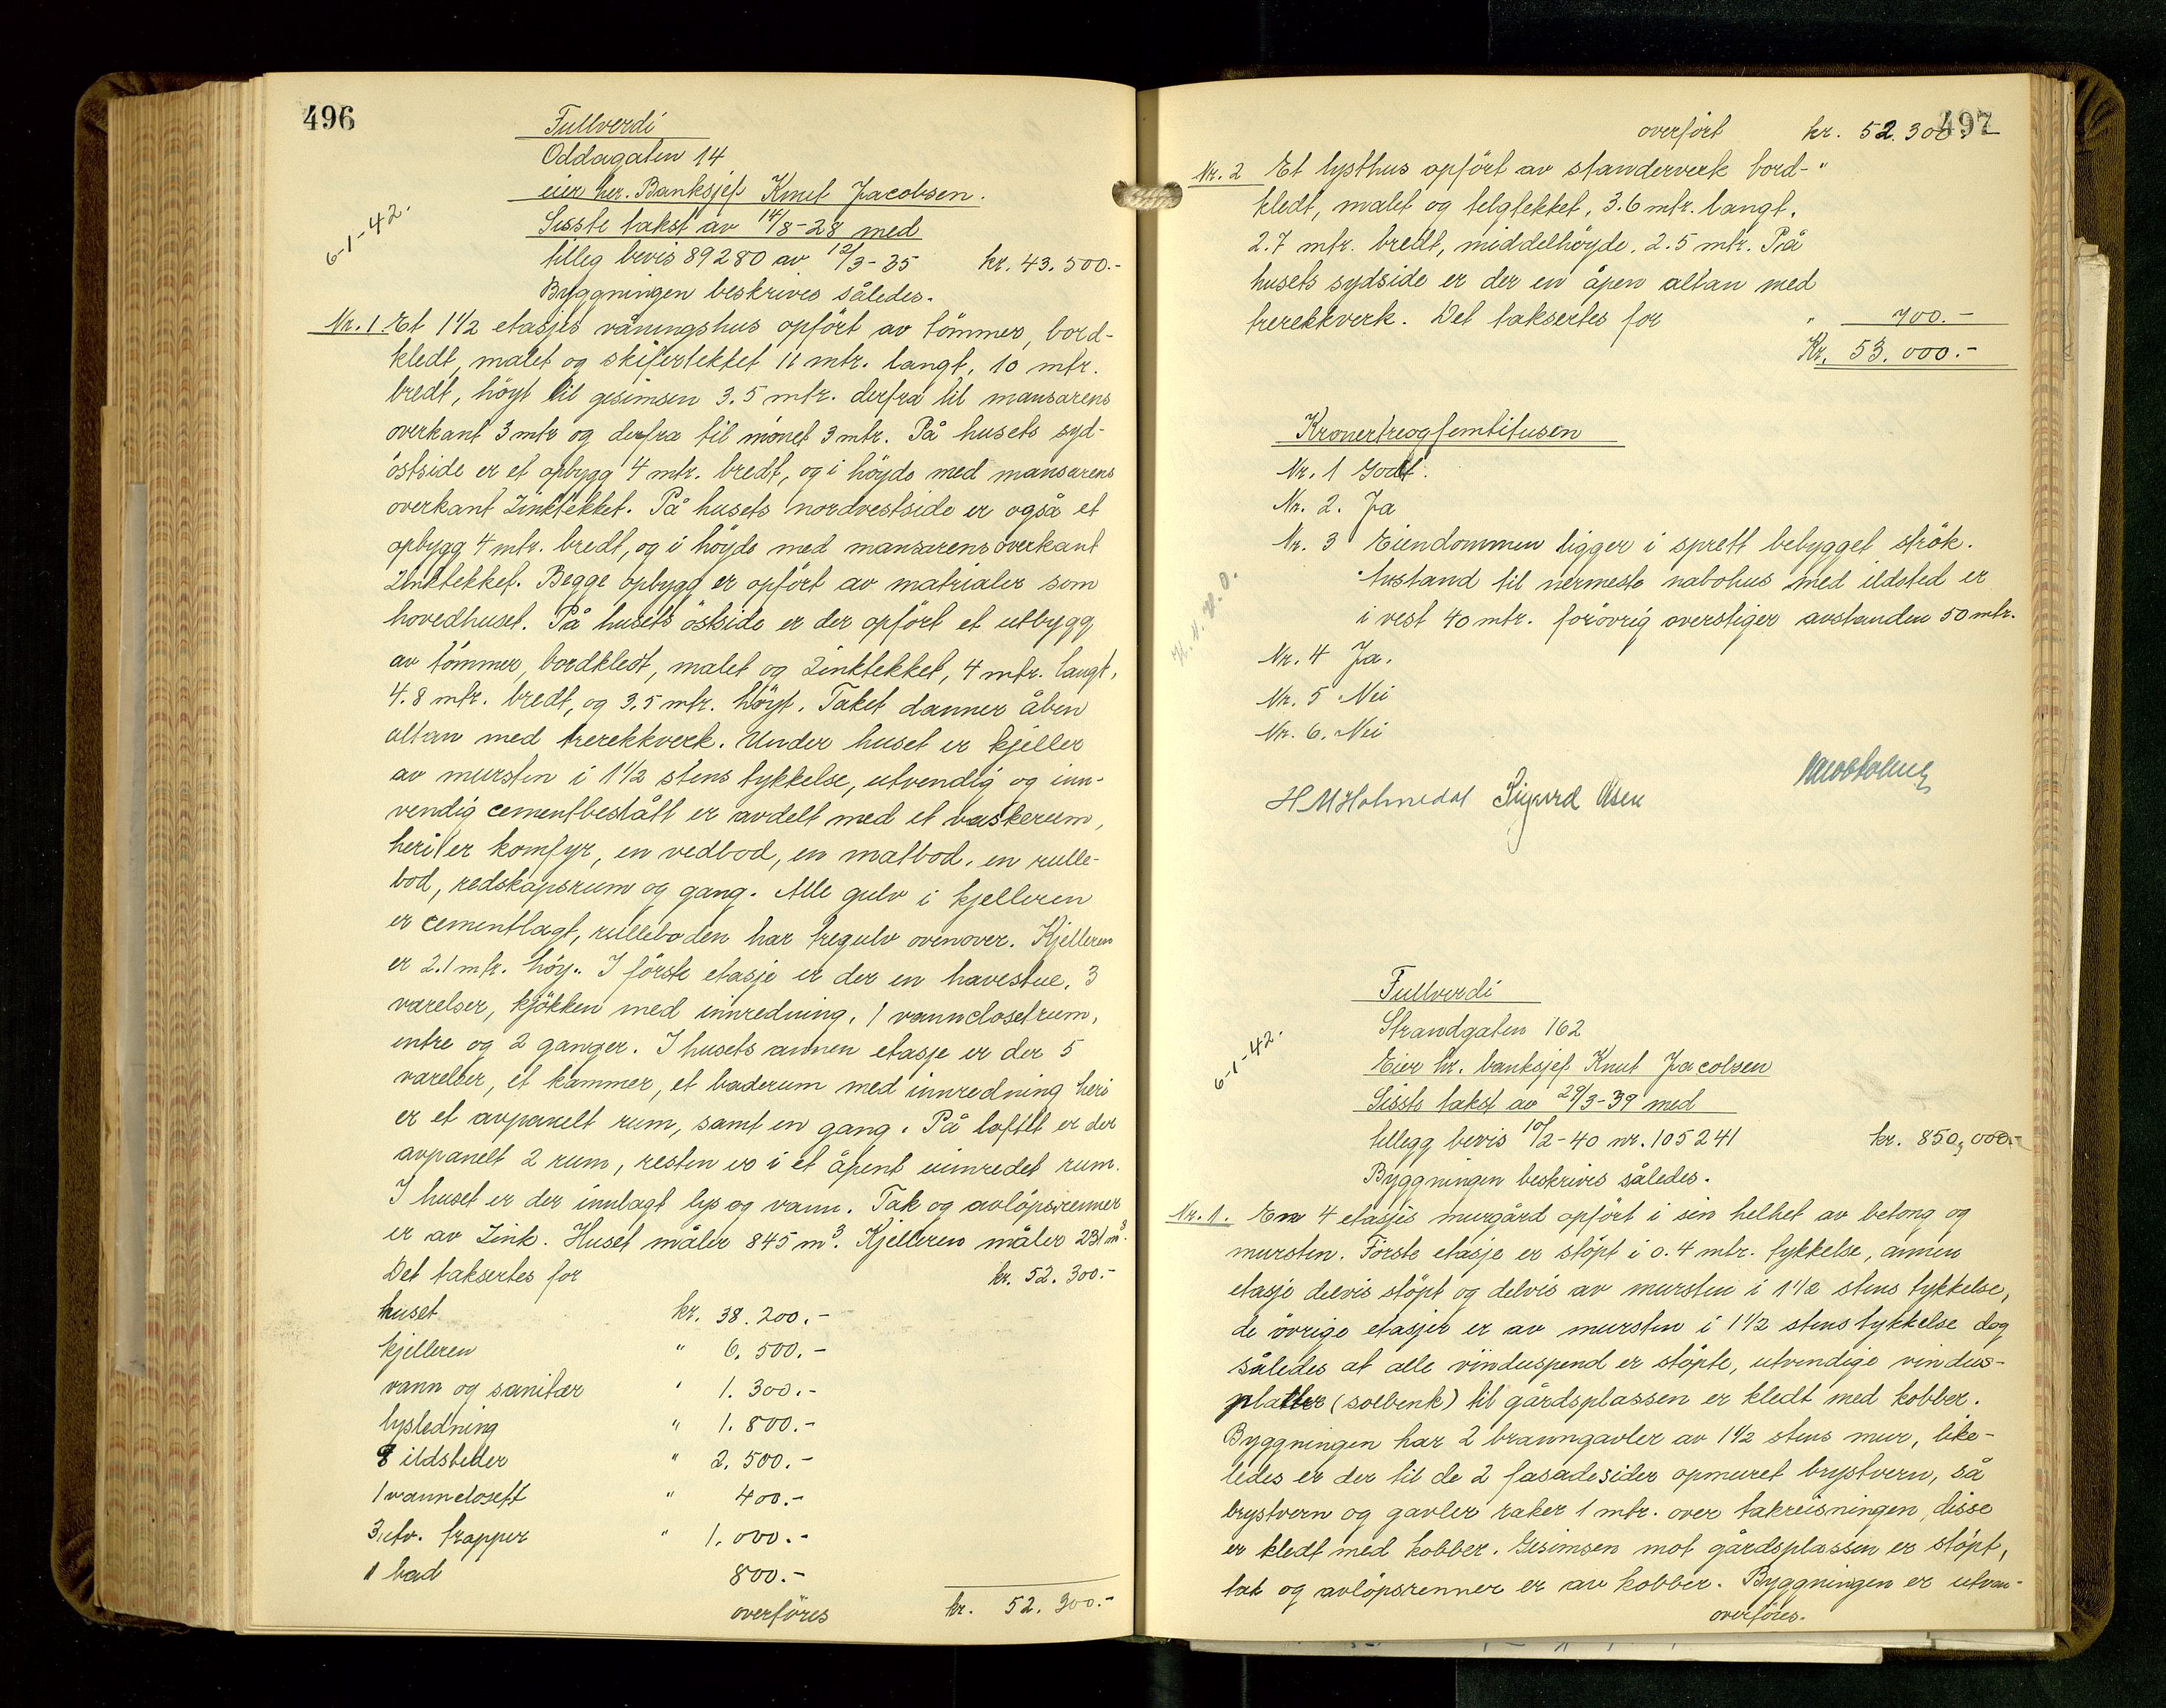 496
Fullverdi
Oddagaten 14
eier her. Banksjef Knut Jacobsen.
6-1-42.
Sisste takst av 14/8-28 med
tilleg bevis 89280 av 12/3-35 kr. 43.500.-
Byggningen beskrives således.
Nr. 1 Et 1 1/2 etasjes våningshus opfört av tömmer, bord-
kledt, malet og skifertekket 11 mtr. langt, 10 mtr.
bredt, höyt til gesimsen 3.5 mtr. derfra til mansarens
overkant 3 mtr og derfra til mönet 3 mtr. På husets syd-
östside er et opbygg 4 mtr. bredt, og i höyde med mansarens
overkant Zinktekket. På husets nordvestside er også et
opbygg 4 mtr. bredt, og i höyde med mansarens overkant
Zinktekket. Begge opbygg er opfört av matrialer som
hovedhuset. På husets östside er der opfört et utbygg
av tömmer, bordkledt, malet og Zinktekket, 4 mtr. langt,
4.8 mtr. bredt, og 3.5 mtr. höyt. Taket danner åben
altan med trerekkverk. Under huset er kjeller
av mursten i 1 1/2 stens tykkelse, utvendig og inn-
vendig cementbestått er avdelt med et vaskerum,
heri er komfyr, en vedbod, en matbod, en rulle-
bod, redskapsrum og gang. Alle gulv i kjelleren
er cementlagt, rulleboden har tregulv ovenover. Kjelleren
er 2.1 mtr. höy. I förste etasje er der en havestue, 3
varelser, kjökken med innredning, 1 vannclosetrum,
entre og 2 ganger. I husets annen etasje er der 5
varelser, et kammer, et baderum med innredning heri
er et avpanelt rum, samt en gang. På loftet er der
avpanelt 2 rum, resten er i et åpent uinredet rum.
I huset er der innlagt lys og vann. Tak og avlöpsrenner
er av Zink. Huset måler 845 m³. Kjelleren måler 231 m³.
Det taksertes for kr. 52.300.-
huset kr. 38.200.-
kjelleren " 6.500.-
vann og sanitær " 1.300.-
lysledning " 1.800.-
8 ildsteder " 2.500.-
1 vannclosett " 400.-
3 utv. trapper " 1.000.-
1 bad 800.-
overföres kr. 52.300.-
497
overfört kr. 52.300.-
Nr. 2 Et lysthus opfört av standerverk bord-"
kledt, malet og telgtekket, 3.6 mtr. langt,
2.7 mtr. bredt, middelhöyde, 2.5 mtr. På
husets sydside er der en åpen altan med
trerekkverk. Det taksertes for " 700.-
Kr. 53.000.-
Kronertreogfemtitusen
Nr. 1 Godt.
Nr. 2. Ja
Nr. 3 Eiendommen ligger i sprett bebygget strök.
Avstand til nermeste nabohus med ildsted er
i vest 40 mtr. forövrig overstiger avstanden 50 mtr.
Nr. 4 Ja.
Nr. 5 Nei
Nr. 6. Nei
H M Holmedal Sigurd Olsen
Fullverdi
Strandgaten 162
6-1-42.
Eier hr. banksjef Knut Jacobsen
Sisste takst av 29/3-39 med
tillegg bevis 10/2-40 nr. 105241 kr. 850,000.-
Byggningen beskrives således.
Nr. 1. En 4 etasjes murgård opfört i sin helhet av betong og
mursten. Förste etasje er stöpt i 0.4 mtr. tykkelse, annen
etasje delvis stöpt og delvis av mursten i 1 1/2 stens tykkelse,
de övrige etasjer er av mursten i 1 1/2 stens tykkelse dog
således at alle vinduspend er stöpte, utvendige vindus-
platter (solbenk) til gårdsplassen er kledt med kobber.
Byggningen har 2 branngavler av 1 1/2 stens mur, like-
ledes er der til de 2 fasadesider opmuret brystvern, så
brystvern og gavler raker 1 mtr. over takreisningen, disse
er kledt med kobber. Gesimsen mot gårdsplassen er stöpt,
tak og avlöpsrenner er av kobber. Byggningen er utvan-
overföres.